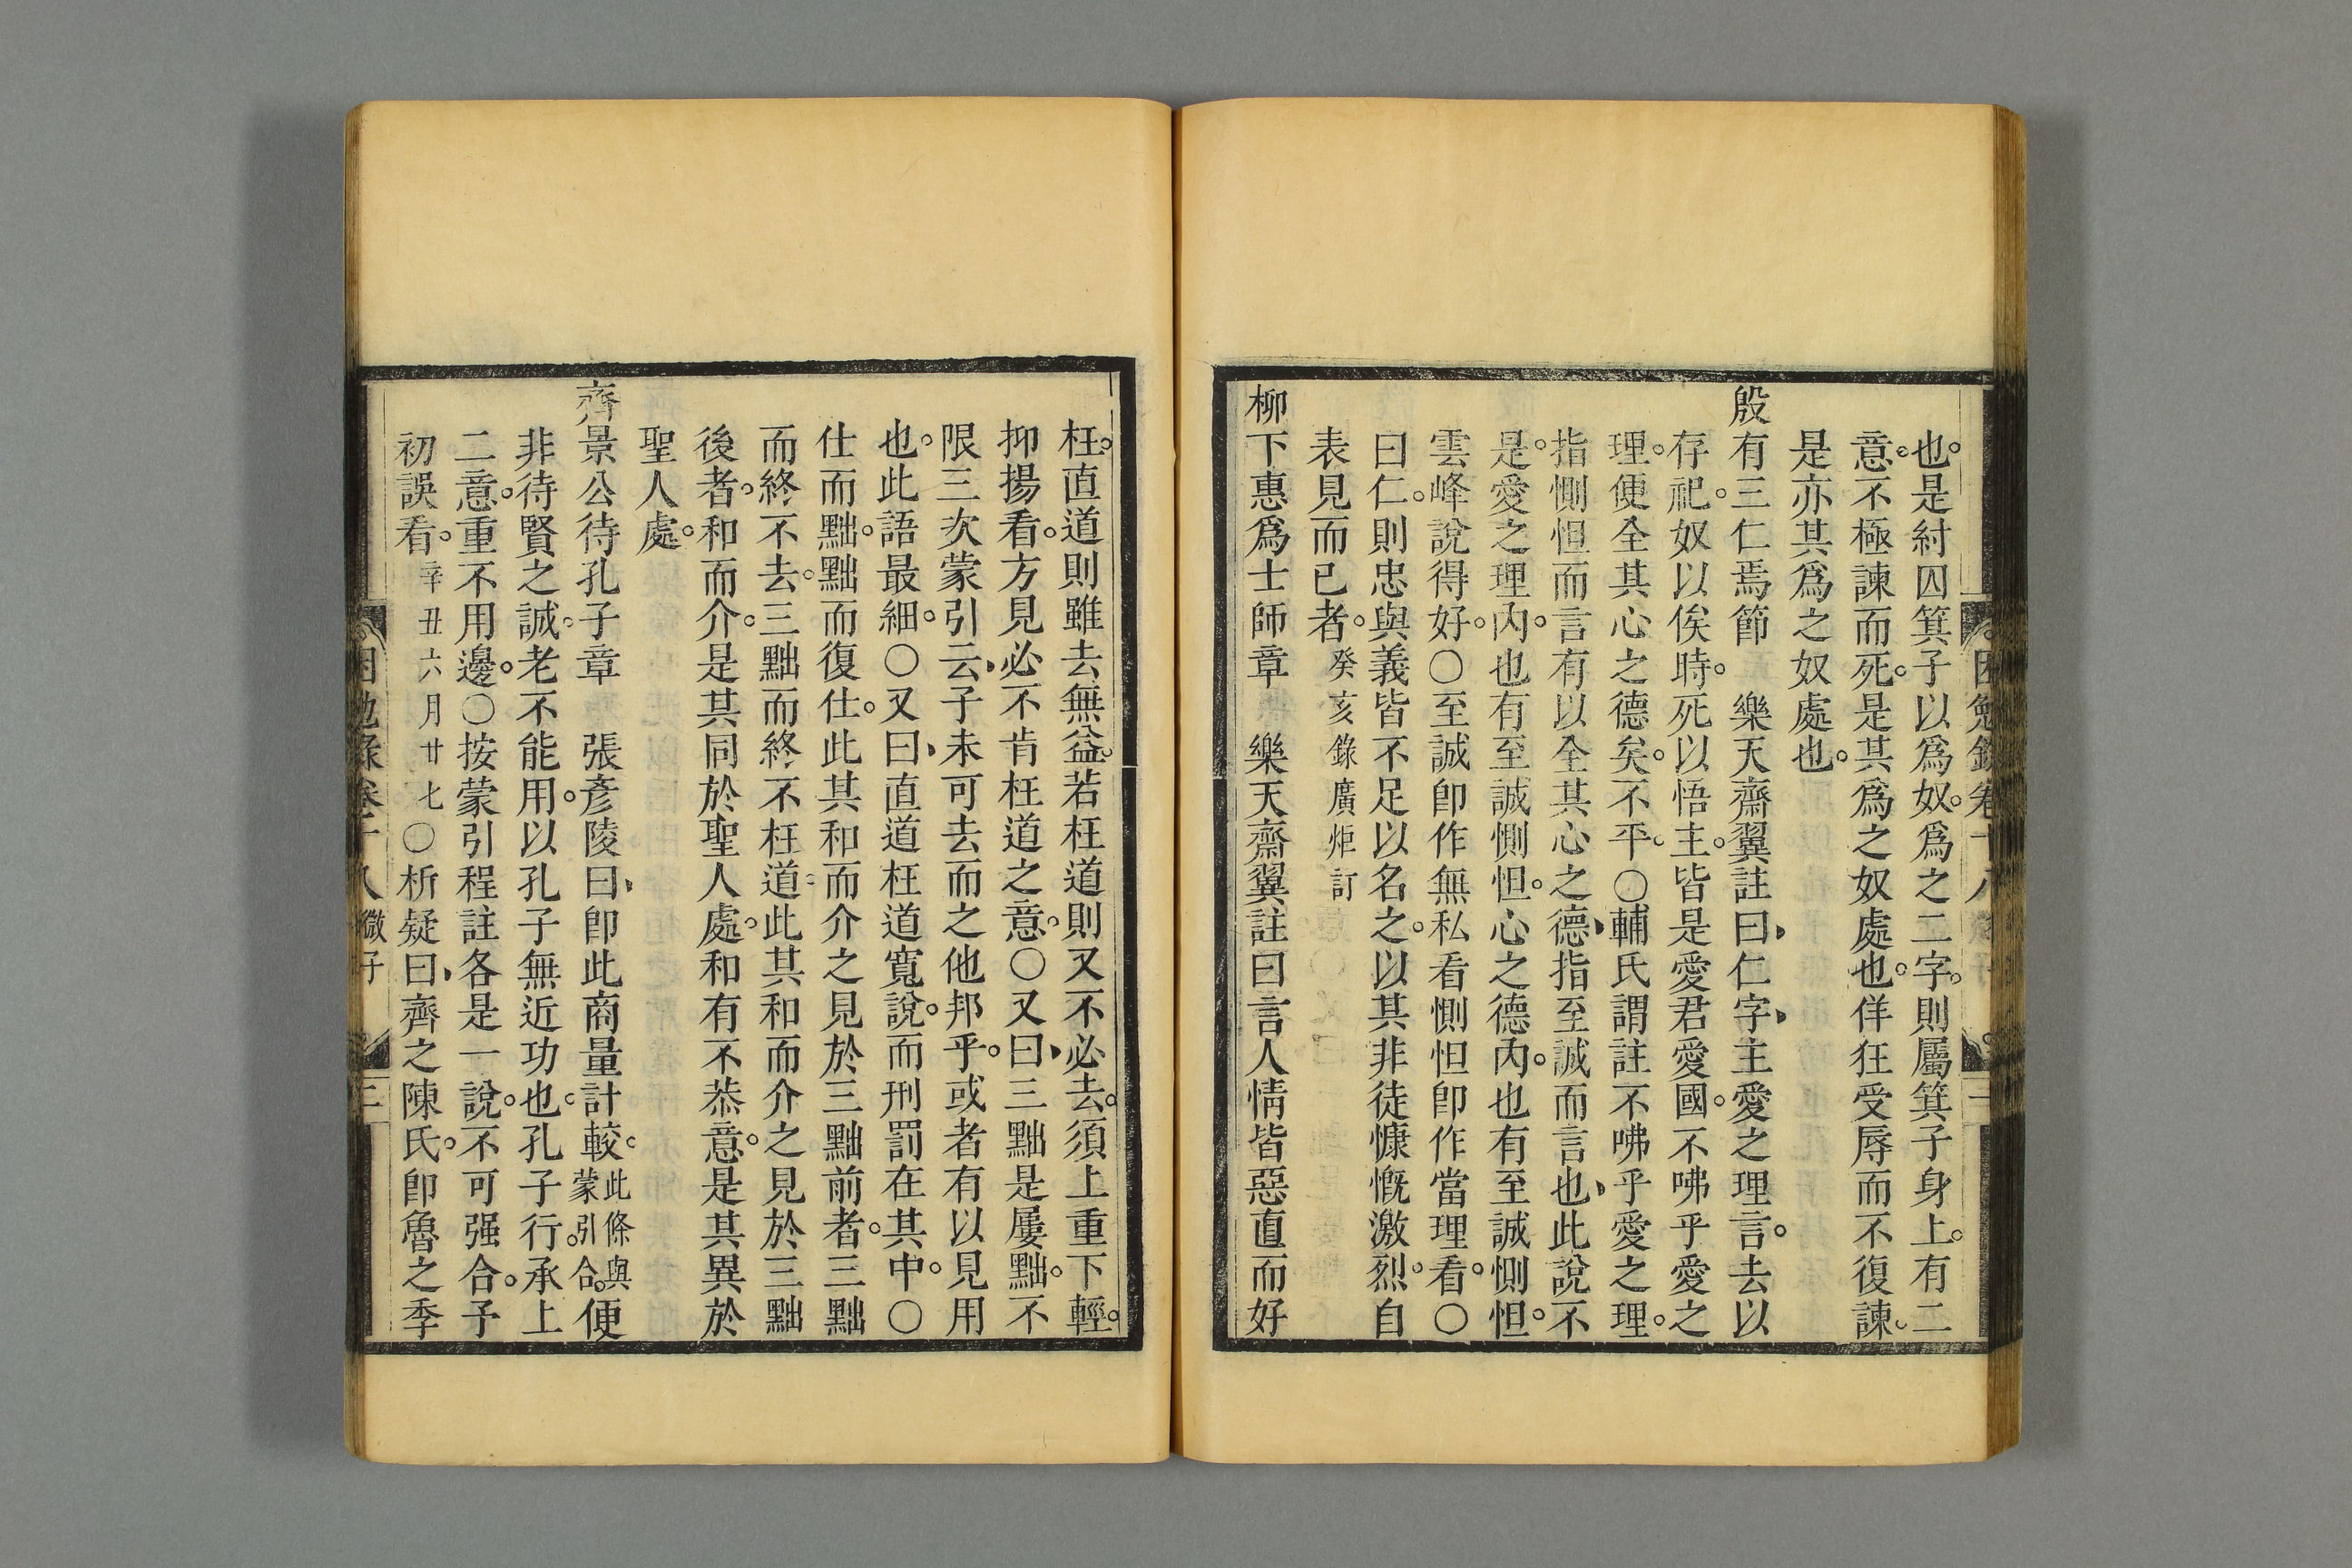 困勉錄卷十八
也。是紂囚箕子以爲奴。爲之二字。則屬箕子身上。有二
意。不極諫而死。是其爲之奴處也。佯狂受辱而不復諫。
是亦其爲之奴處也。
殷有三仁焉節　樂天齋翼註曰、仁字、主愛之理言。去以
存祀。奴以俟時。死以悟主。皆是愛君愛國。不咈乎愛之
理。便全其心之德矣。不平。○輔氏謂註不咈乎愛之理。
指惻怛而言有以全其心之德、指至誠而言也、此說不
是。愛之理內。也有至誠惻怛。心之德內。也有至誠惻怛。
雲峰說得好。○至誠卽作無私看惻怛卽作當理看。○
曰仁。則忠與義皆不足以名之。以其非徒慷慨激烈。自
表見而已者。癸亥錄廣炬訂
柳下惠爲士師章　樂天齋翼註曰言人情皆惡直而好
枉。直道則雖去無益。若枉道則又不必去。須上重下輕。
抑揚看。方見必不肯枉道之意。○又曰、三黜是屢黜。不
限三次蒙引云、子未可去而之他邦乎。或者有以見用
也。此語最細。○又曰、直道枉道寬說。而刑罰在其中。○
仕而黜。黜而復仕。此其和而介之見於三黜前者。三黜
而終不去。三黜而終不枉道。此其和而介之見於三黜
後者。和而介。是其同於聖人處。和有不恭意。是其異於
聖人處。
齊景公待孔子章　張彥陵曰、卽此商量計較。此條與蒙引合。便
非待賢之誠。老不能用。以孔子無近功也。孔子行。承上
二意。重不用邊。○按蒙引程註各是一說。不可强合。予
初誤看。辛丑六月廿七○析疑曰、齊之陳氏。卽魯之季
困勉錄卷十八　微子　三